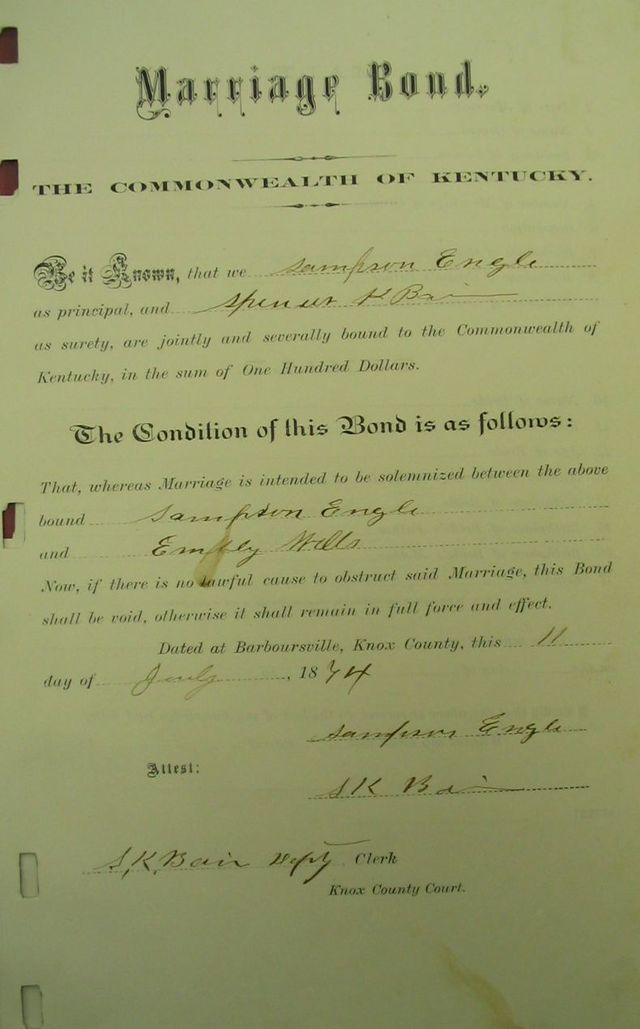 Marriage Bond.
THE COMMONWEALTH OF KENTUCKY.
Be it Known, that we Sampson Engle
as principal, and Spencer K Bain
as surety, are jointly and severally bound to the Commonwealth of
Kentucky, in the sum of One Hundred Dollars.
The Condition of this Bond is as follows:
That, whereas Marriage is intended to be solemnized between the above
bound Sampson Engle
and Wells
Now, if there is no lawful cause to obstruct said Marriage, this Bond
shall be void, otherwise it shall remain in full force and effect.
Dated at Barboursville, Knox County, this 11
day of July, 1874
Sampson Engle
Attest:
S K Bain
S, K, Bain Depty Clerk
Knox County Court.